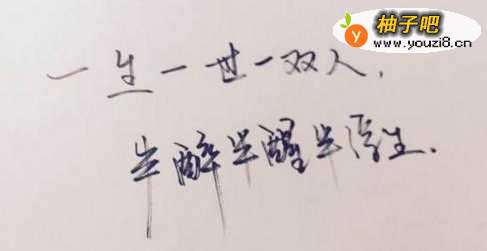 柚子吧
www.youzi8.cn
一生一世一双人,
半醉半醒半浮生.